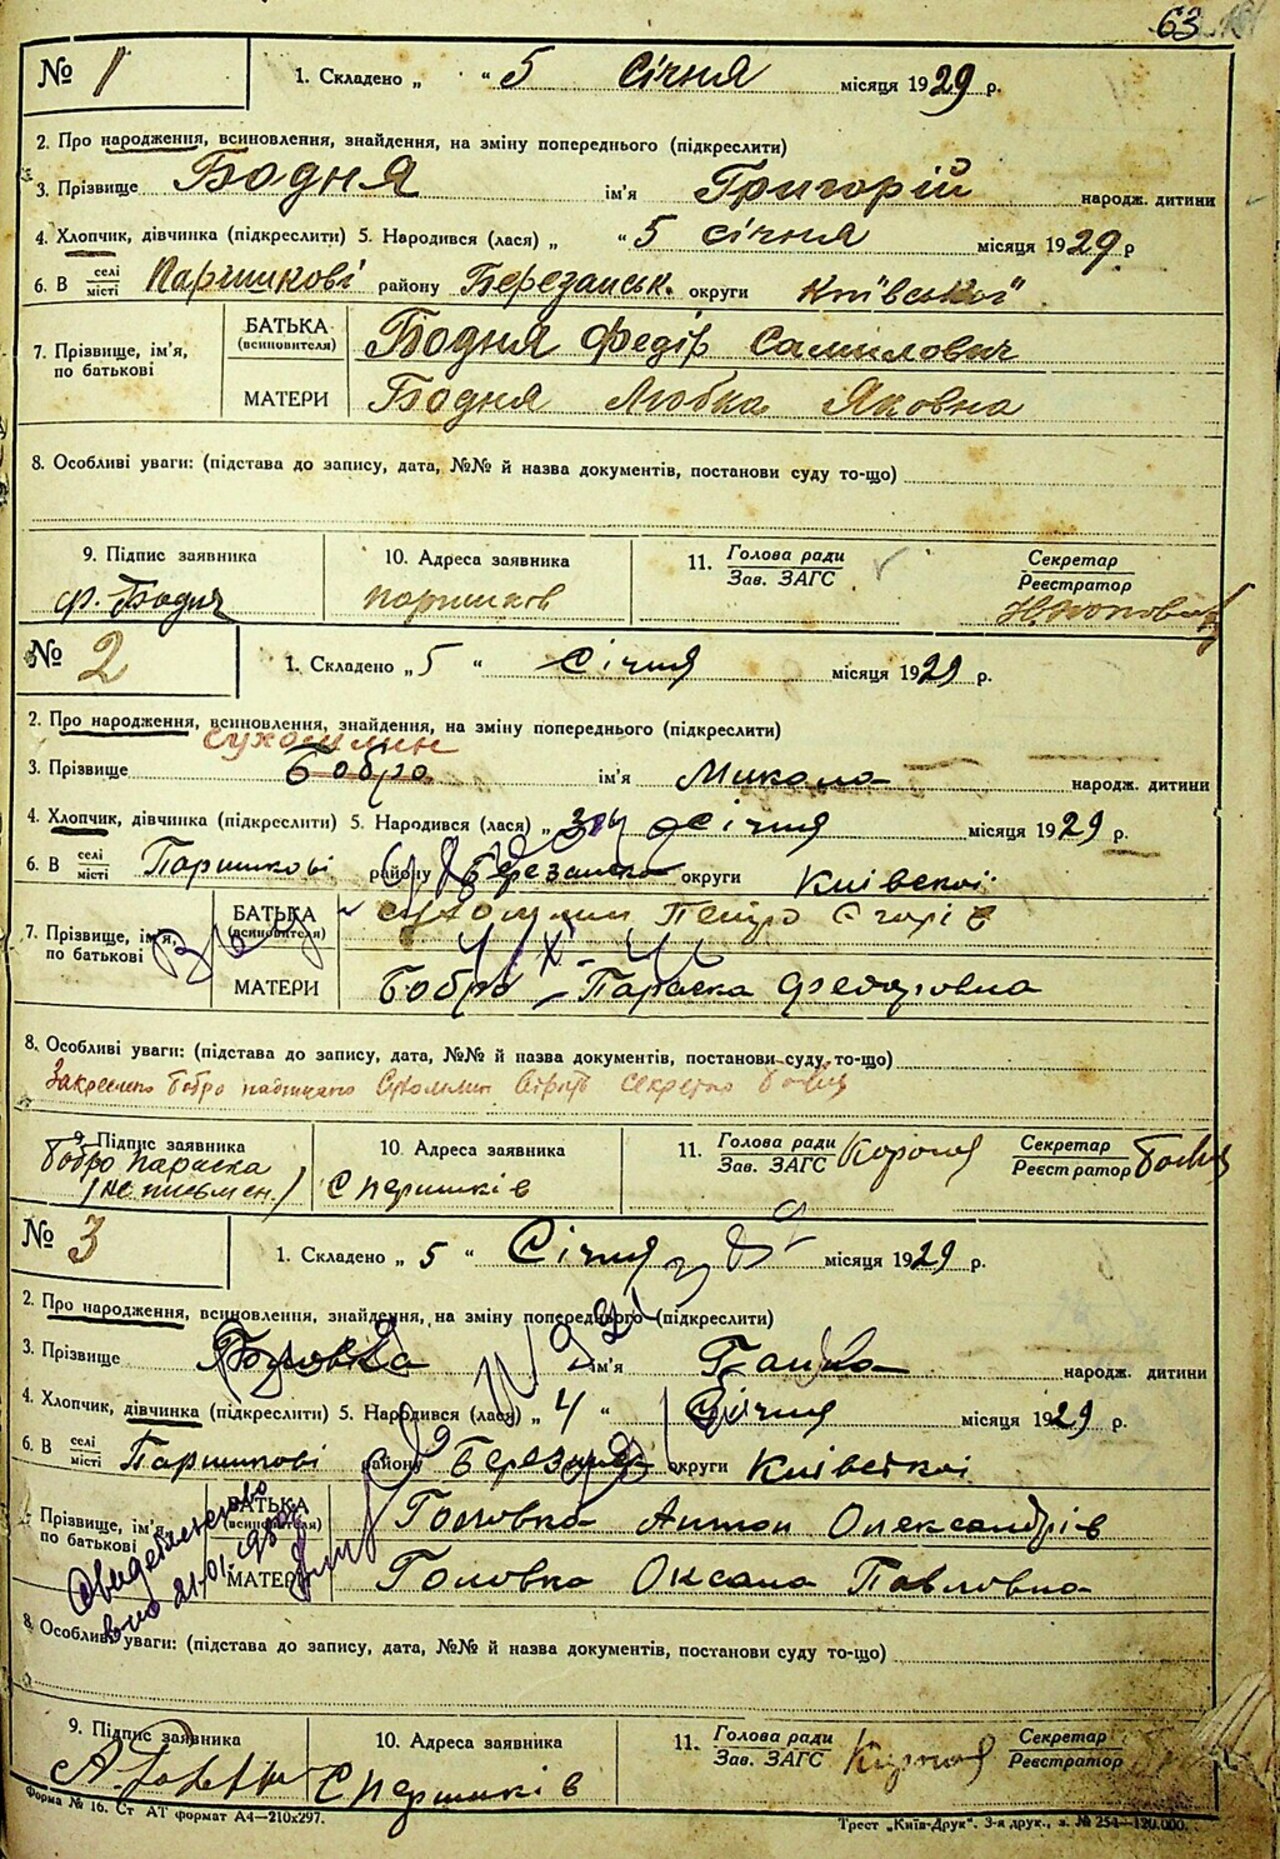 63
№ 1
1. Складено „ “ 5 Січня місяця 1929 р.
2. Про народження, всиновлення, знайдення, на зміну попереднього (підкреслити)
3. Прізвище Бодня ім'я Григорій народж. дитини
4. Хлопчик, дівчинка (підкреслити) 5. Народився (лася) „ “ 5 січня місяця 1929 р
6. В селі місті Паришкові району Березанськ. округи Київської
7. Прізвище, ім'я, по батькові
БАТЬКА (всиновителя) Бодня Федір Самилович
МАТЕРИ Бодня Любка Яковна
8. Особливі уваги: (підстава до запису, дата, №№ й назва документів, постанови суду то-що)
9. Підпис заявника 10. Адреса заявника 11. Голова ради Зав. ЗАГС Секретар Реєстратор
Ф. Бодня Паришков
№ 2
1. Складено „ 5 “ Січня місяця 1929 р.
2. Про народження, всиновлення, знайдення, на зміну попереднього (підкреслити)
Сухомлин
3. Прізвище Бобро ім'я Микола народж. дитини
4. Хлопчик, дівчинка (підкреслити) 5. Народився (лася) „ Січня місяця 1929 р.
6. В селі місті Паришкові району Березанськ округи Київської
7. Прізвище, ім'я, по батькові
БАТЬКА (всиновителя) Сухомлин Петро
МАТЕРИ Бобро Параска Федоровна
8. Особливі уваги: (підстава до запису, дата, №№ й назва документів, постанови суду то-що)
Закреслено Бобро надписано Сухомлин
9. Підпис заявника 10. Адреса заявника 11. Голова ради Зав. ЗАГС Секретар Реєстратор
Бобро Параска
(не письмен.) С Першиків
№ 3
1. Складено „ 5 “ Січня місяця 1929 р.
2. Про народження, всиновлення, знайдення, на зміну попереднього (підкреслити)
3. Прізвище Головка ім'я Ганна народж. дитини
4. Хлопчик, дівчинка (підкреслити) 5. Народився (лася) „ 4 “ Січня місяця 1929 р.
6. В селі місті Паришкові району Березанськ округи Київської
7. Прізвище, ім'я, по батькові
БАТЬКА (всиновителя) Головко Антон Олександрів
МАТЕРИ Головко Оксана Павловна
8. Особливі уваги: (підстава до запису, дата, №№ й назва документів, постанови суду то-що)
9. Підпис заявника 10. Адреса заявника 11. Голова ради Зав. ЗАГС Секретар Реєстратор
С Першиків
Форма № 16. Ст АТ формат А4—210х297.
Трест „Київ-Друк“. 3-я друк., з. № 254—120.000.